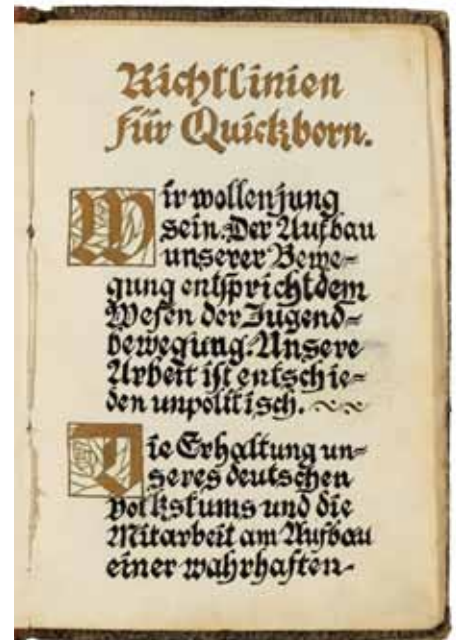 Richtlinien
für Quickborn.
Wir wollen jung
sein. Der Aufbau
unserer Bewe-
gung entspricht dem
Wesen der Jugend-
bewegung. Unsere
Arbeit ist entschie-
den unpolitisch.
Die Erhaltung un-
seres deutschen
Volkstums und die
Mitarbeit am Aufbau
einer wahrhaften